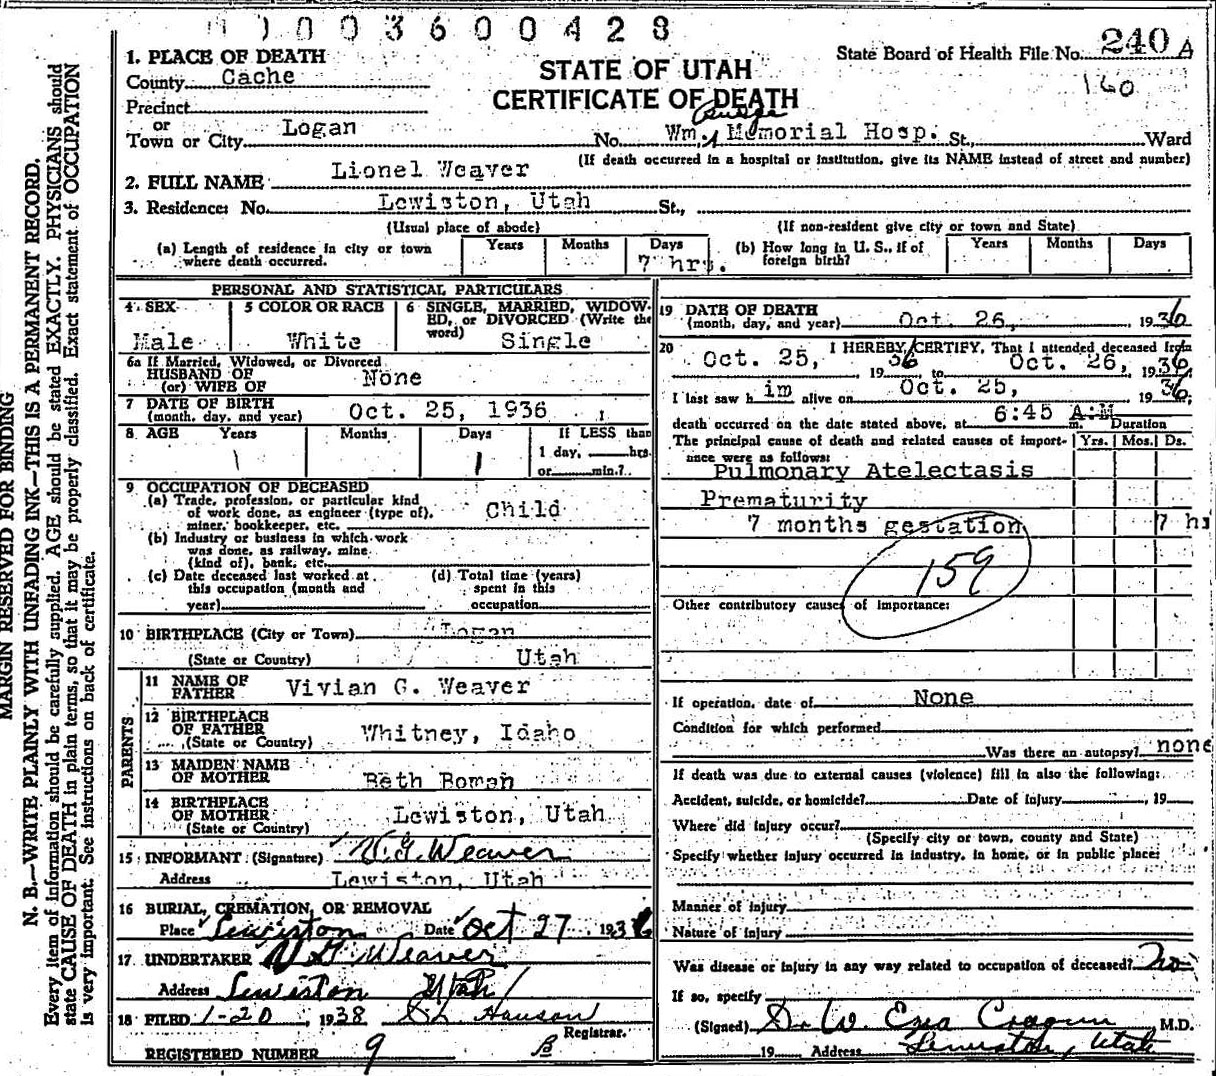 0003600428
State Board of Health File No. 240 A
160
STATE OF UTAH
CERTIFICATE OF DEATH
1. PLACE OF DEATH
County Cache
Precinct
or
Town or City Logan No. Wm. Budge Memorial Hosp. St., Ward
(If death occurred in a hospital or institution, give its NAME instead of street and number)
2. FULL NAME Lionel Weaver
3. Residence: No. Lewiston, Utah St.,
(Usual place of abode) (If non-resident give city or town and State)
(a) Length of residence in city or town where death occurred. Years Months Days 7 hrs. (b) How long in U. S., if of foreign birth? Years Months Days
PERSONAL AND STATISTICAL PARTICULARS
4 SEX 5 COLOR OR RACE 6 SINGLE, MARRIED, WIDOW-
ED, or DIVORCED (Write the
word)
Male White Single
6a If Married, Widowed, or Divorced
HUSBAND OF
(or) WIFE OF None
7 DATE OF BIRTH
(month, day, and year) Oct. 25, 1936
8 AGE Years Months Days If LESS than
1 1 day, hrs.
or min.?
9 OCCUPATION OF DECEASED
(a) Trade, profession, or particular kind
of work done, as engineer (type of), Child
miner, bookkeeper, etc.
(b) Industry or business in which work
was done, as railway, mine
(kind of), bank, etc.
(c) Date deceased last worked at (d) Total time (years)
this occupation (month and spent in this
year) occupation
10 BIRTHPLACE (City or Town) Logan
(State or Country) Utah
PARENTS
11 NAME OF
FATHER Vivian G. Weaver
12 BIRTHPLACE
OF FATHER Whitney, Idaho
(State or Country)
13 MAIDEN NAME
OF MOTHER Beth Boman
14 BIRTHPLACE
OF MOTHER Lewiston, Utah
(State or Country)
15 INFORMANT (Signature) V. G. Weaver
Address Lewiston, Utah
16 BURIAL, CREMATION, OR REMOVAL
Place Lewiston Date Oct 27 1936
17 UNDERTAKER V G Weaver
Address Lewiston Utah
18 FILED 1-20, 1938 S L Hanson
Registrar.
REGISTERED NUMBER 9
19 DATE OF DEATH
(month, day, and year) Oct. 26, 1936
20 I HEREBY CERTIFY, That I attended deceased from
Oct. 25, 1936 to Oct. 26, 1936,
I last saw him alive on Oct. 25, 1936;
death occurred on the date stated above, at 6:45 A.M. m. Duration
The principal cause of death and related causes of import- Yrs. Mos. Ds.
ance were as follows:
Pulmonary Atelectasis
Prematurity
7 months gestation 7 hs
159
Other contributory causes of importance:
If operation, date of None
Condition for which performed
Was there an autopsy? none
If death was due to external causes (violence) fill in also the following:
Accident, suicide, or homicide? Date of injury , 19
Where did injury occur?
(Specify city or town, county and State)
Specify whether injury occurred in industry, in home, or in public place:
Manner of injury
Nature of injury
Was disease or injury in any way related to occupation of deceased? No
If so, specify
(Signed) Dr W. Ezra Cragun M.D.
19 Address Lewiston, Utah
MARGIN RESERVED FOR BINDING
N. B.—WRITE PLAINLY WITH UNFADING INK—THIS IS A PERMANENT RECORD.
Every item of information should be carefully supplied. AGE should be stated EXACTLY. PHYSICIANS should
state CAUSE OF DEATH in plain terms, so that it may be properly classified. Exact statement of OCCUPATION
is very important. See instructions on back of certificate.